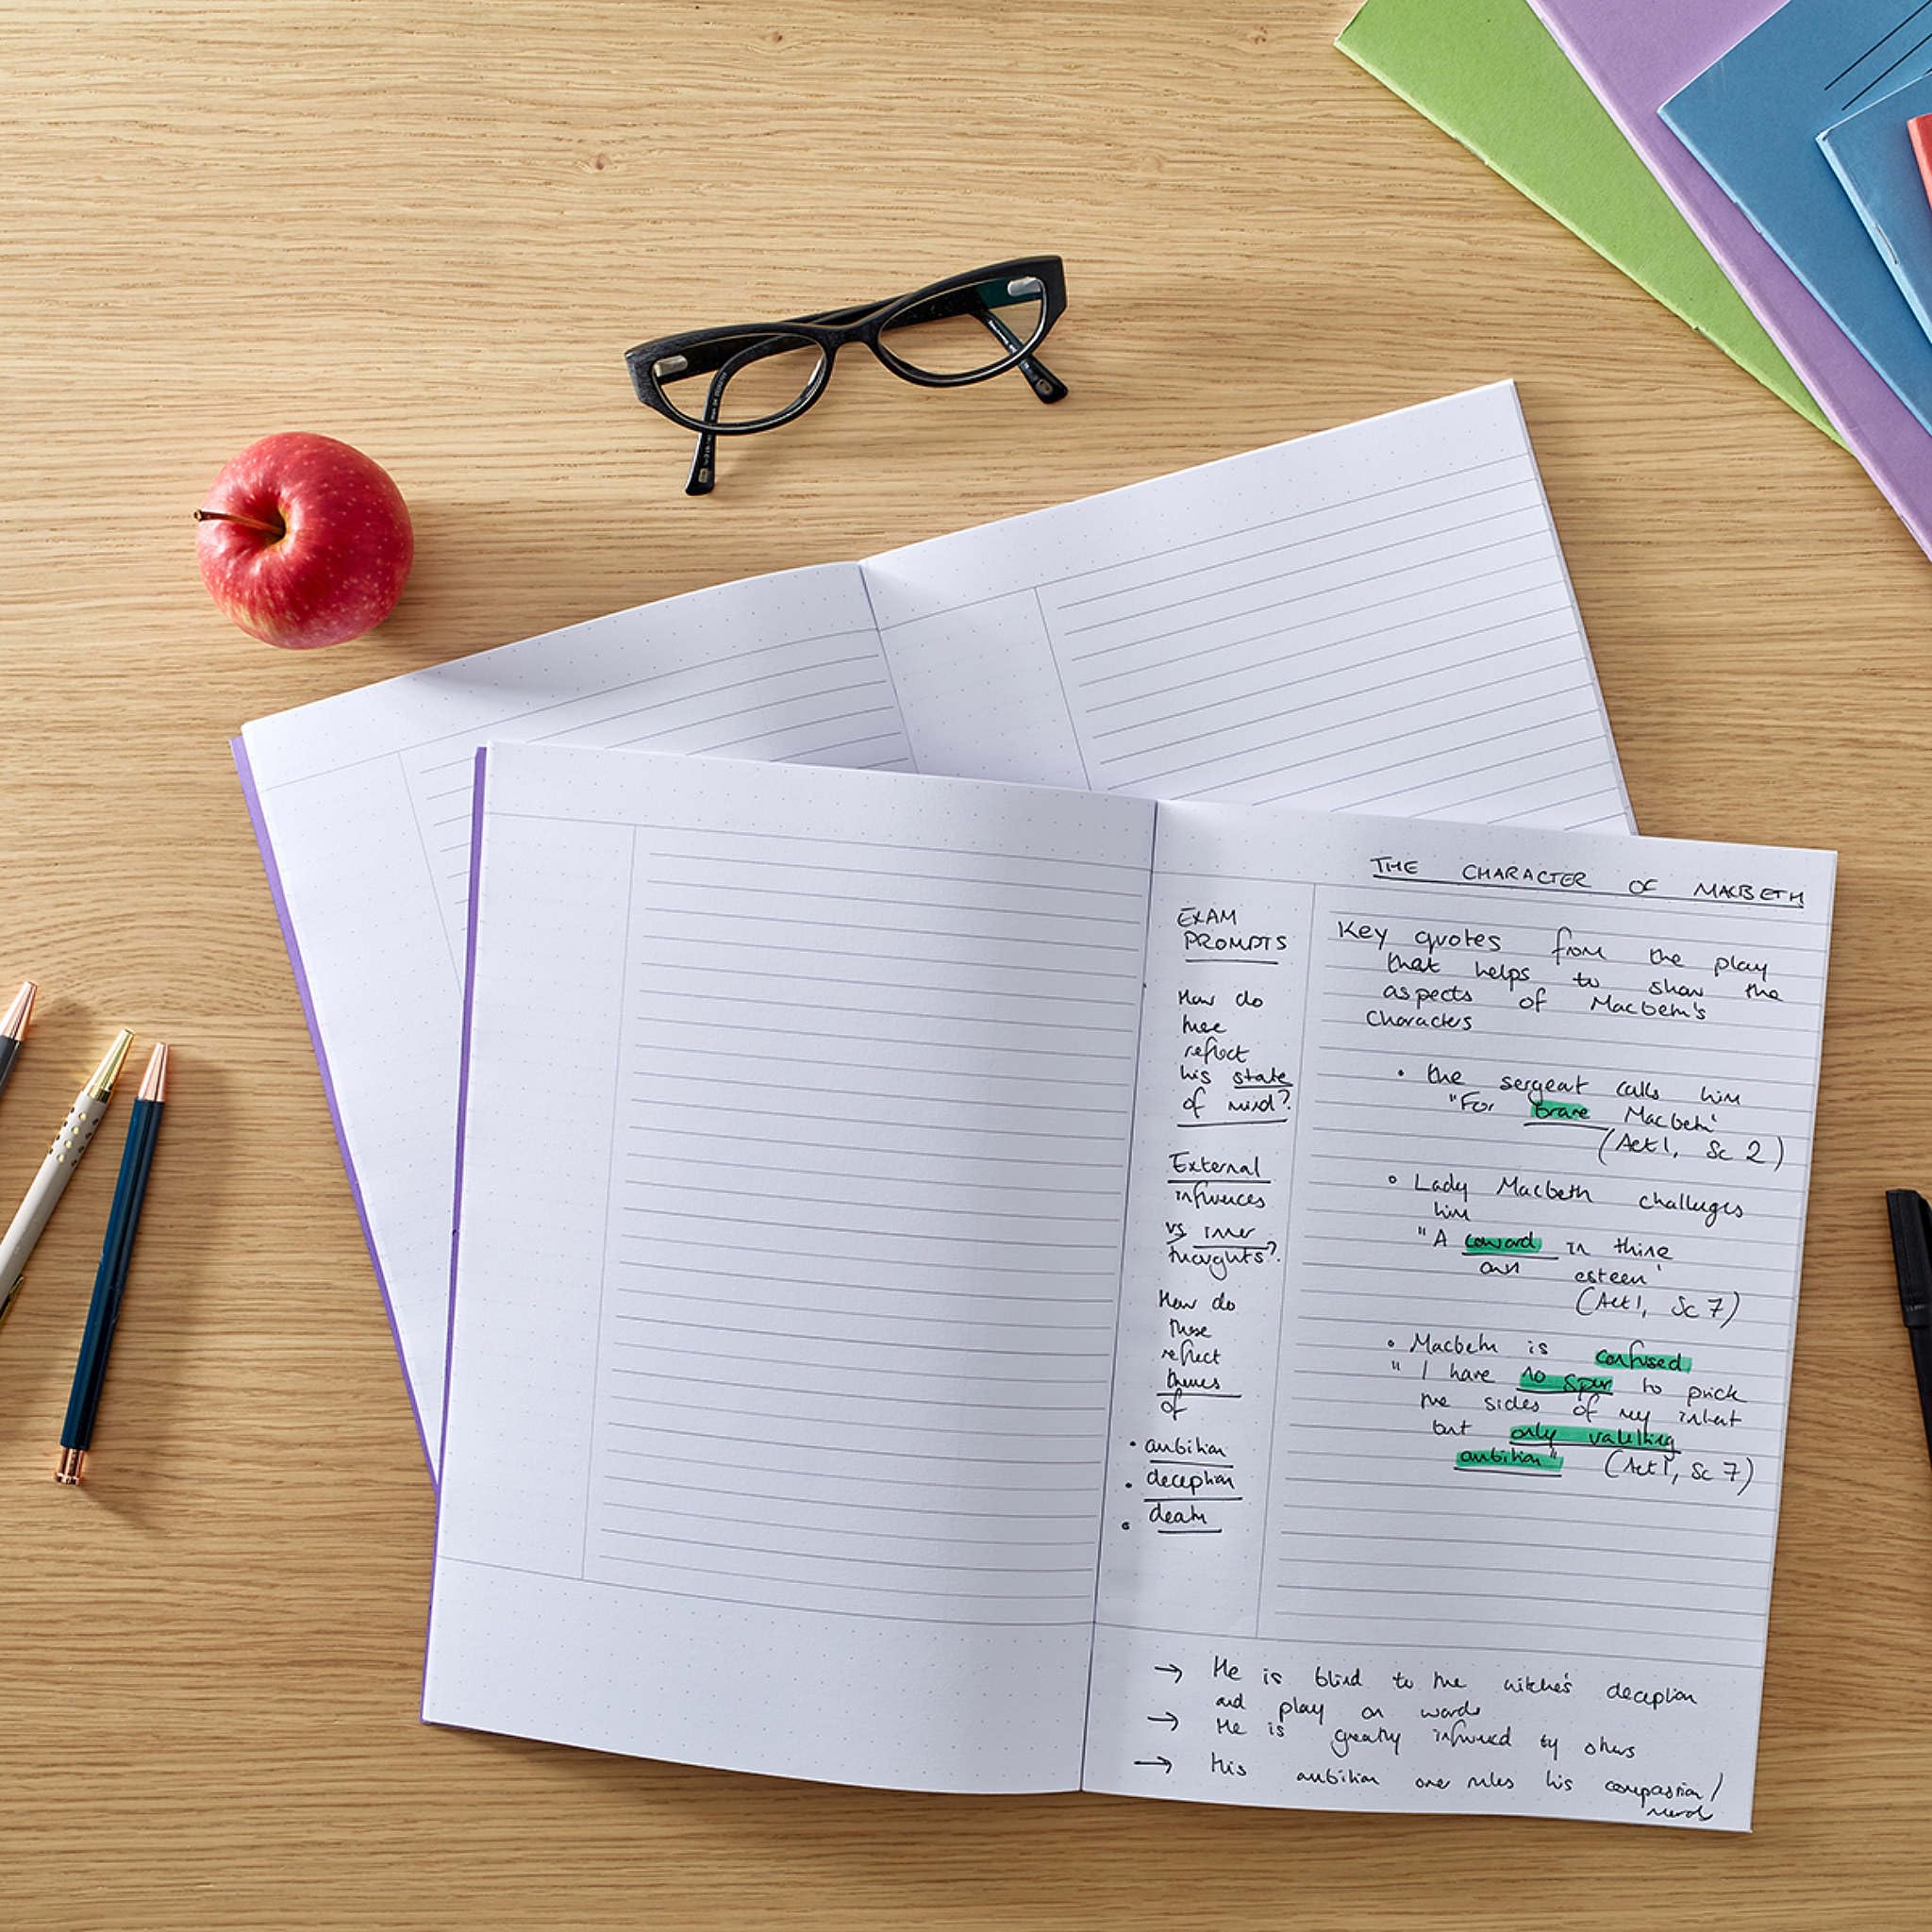 THE CHARACTER OF MACBETH
EXAM
PROMPTS
How do
these
reflect
his state
of mind?
External
influences
vs inner
thoughts?
How do
these
reflect
themes
of
• ambition
• deception
• death
Key quotes from the play
that helps to show the
aspects of Macbeth's
Characters
• the sergeat calls him
"For brave Macbeth"
(Act 1, Sc 2)
• Lady Macbeth challenges
him
"A coward in thine
own esteem"
(Act 1, Sc 7)
• Macbeth is confused
"I have no spur to prick
the sides of my intent
but only vaulting
ambition" (Act 1, Sc 7)
→ He is blind to the witche's deception
and play on words
→ He is greatly influenced by others
→ His ambition over rules his compassion/
morals